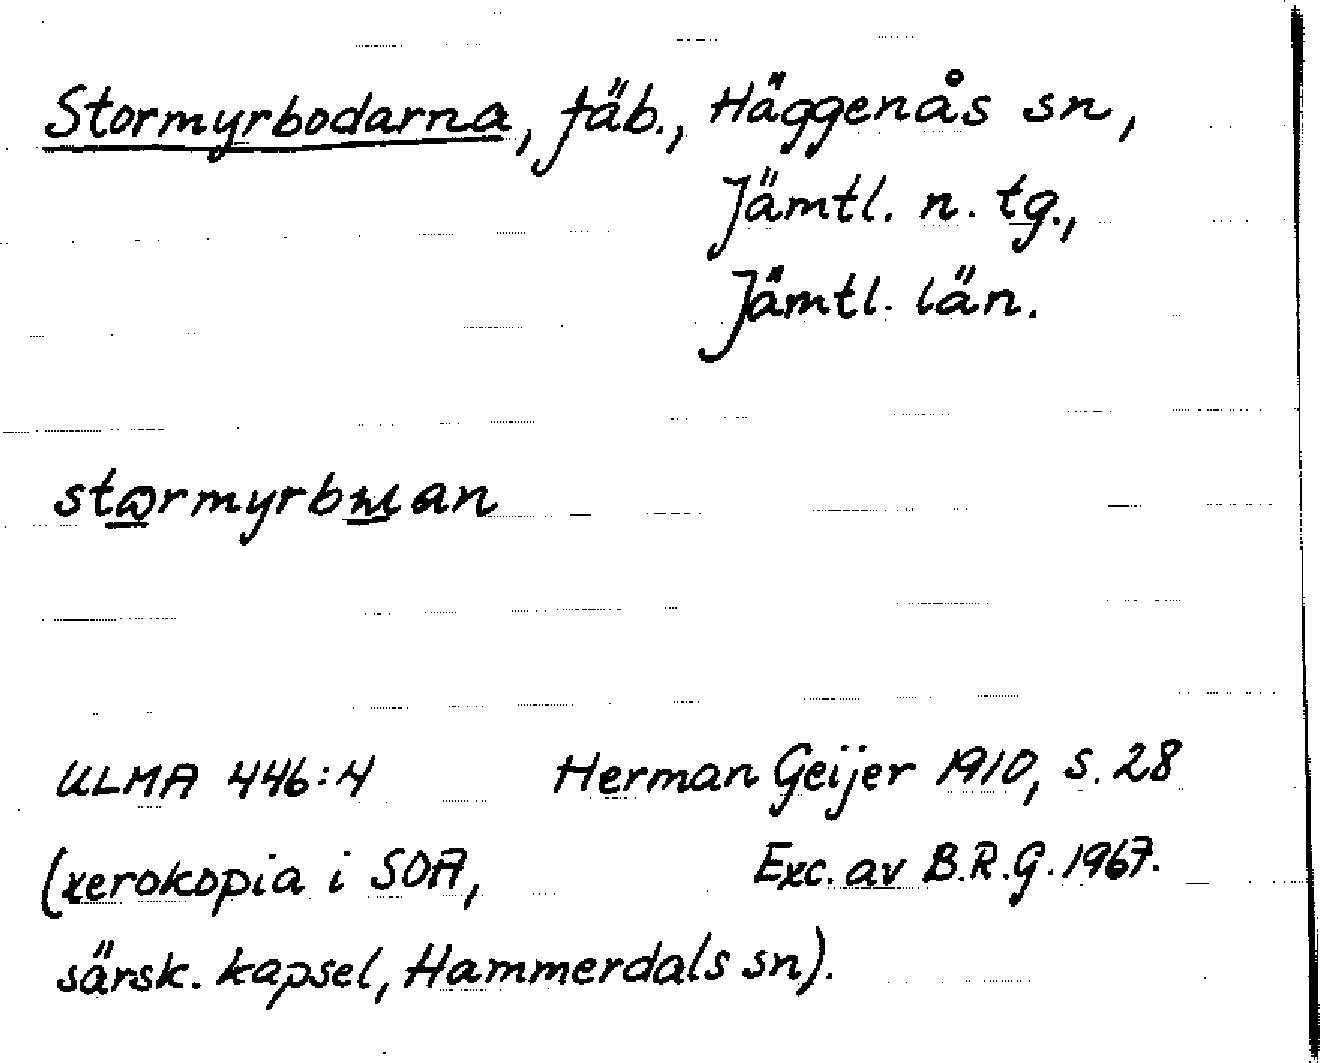 Stormyrbodarna, fäb., Häggenås sn,
Jämtl. n. tg.,
Jämtl. län.
ULMA 446:4 Herman Geijer 1910, s. 28
(xerokopia i SOA, Exc. av B.R.G. 1967.
särsk. kapsel, Hammerdals sn).